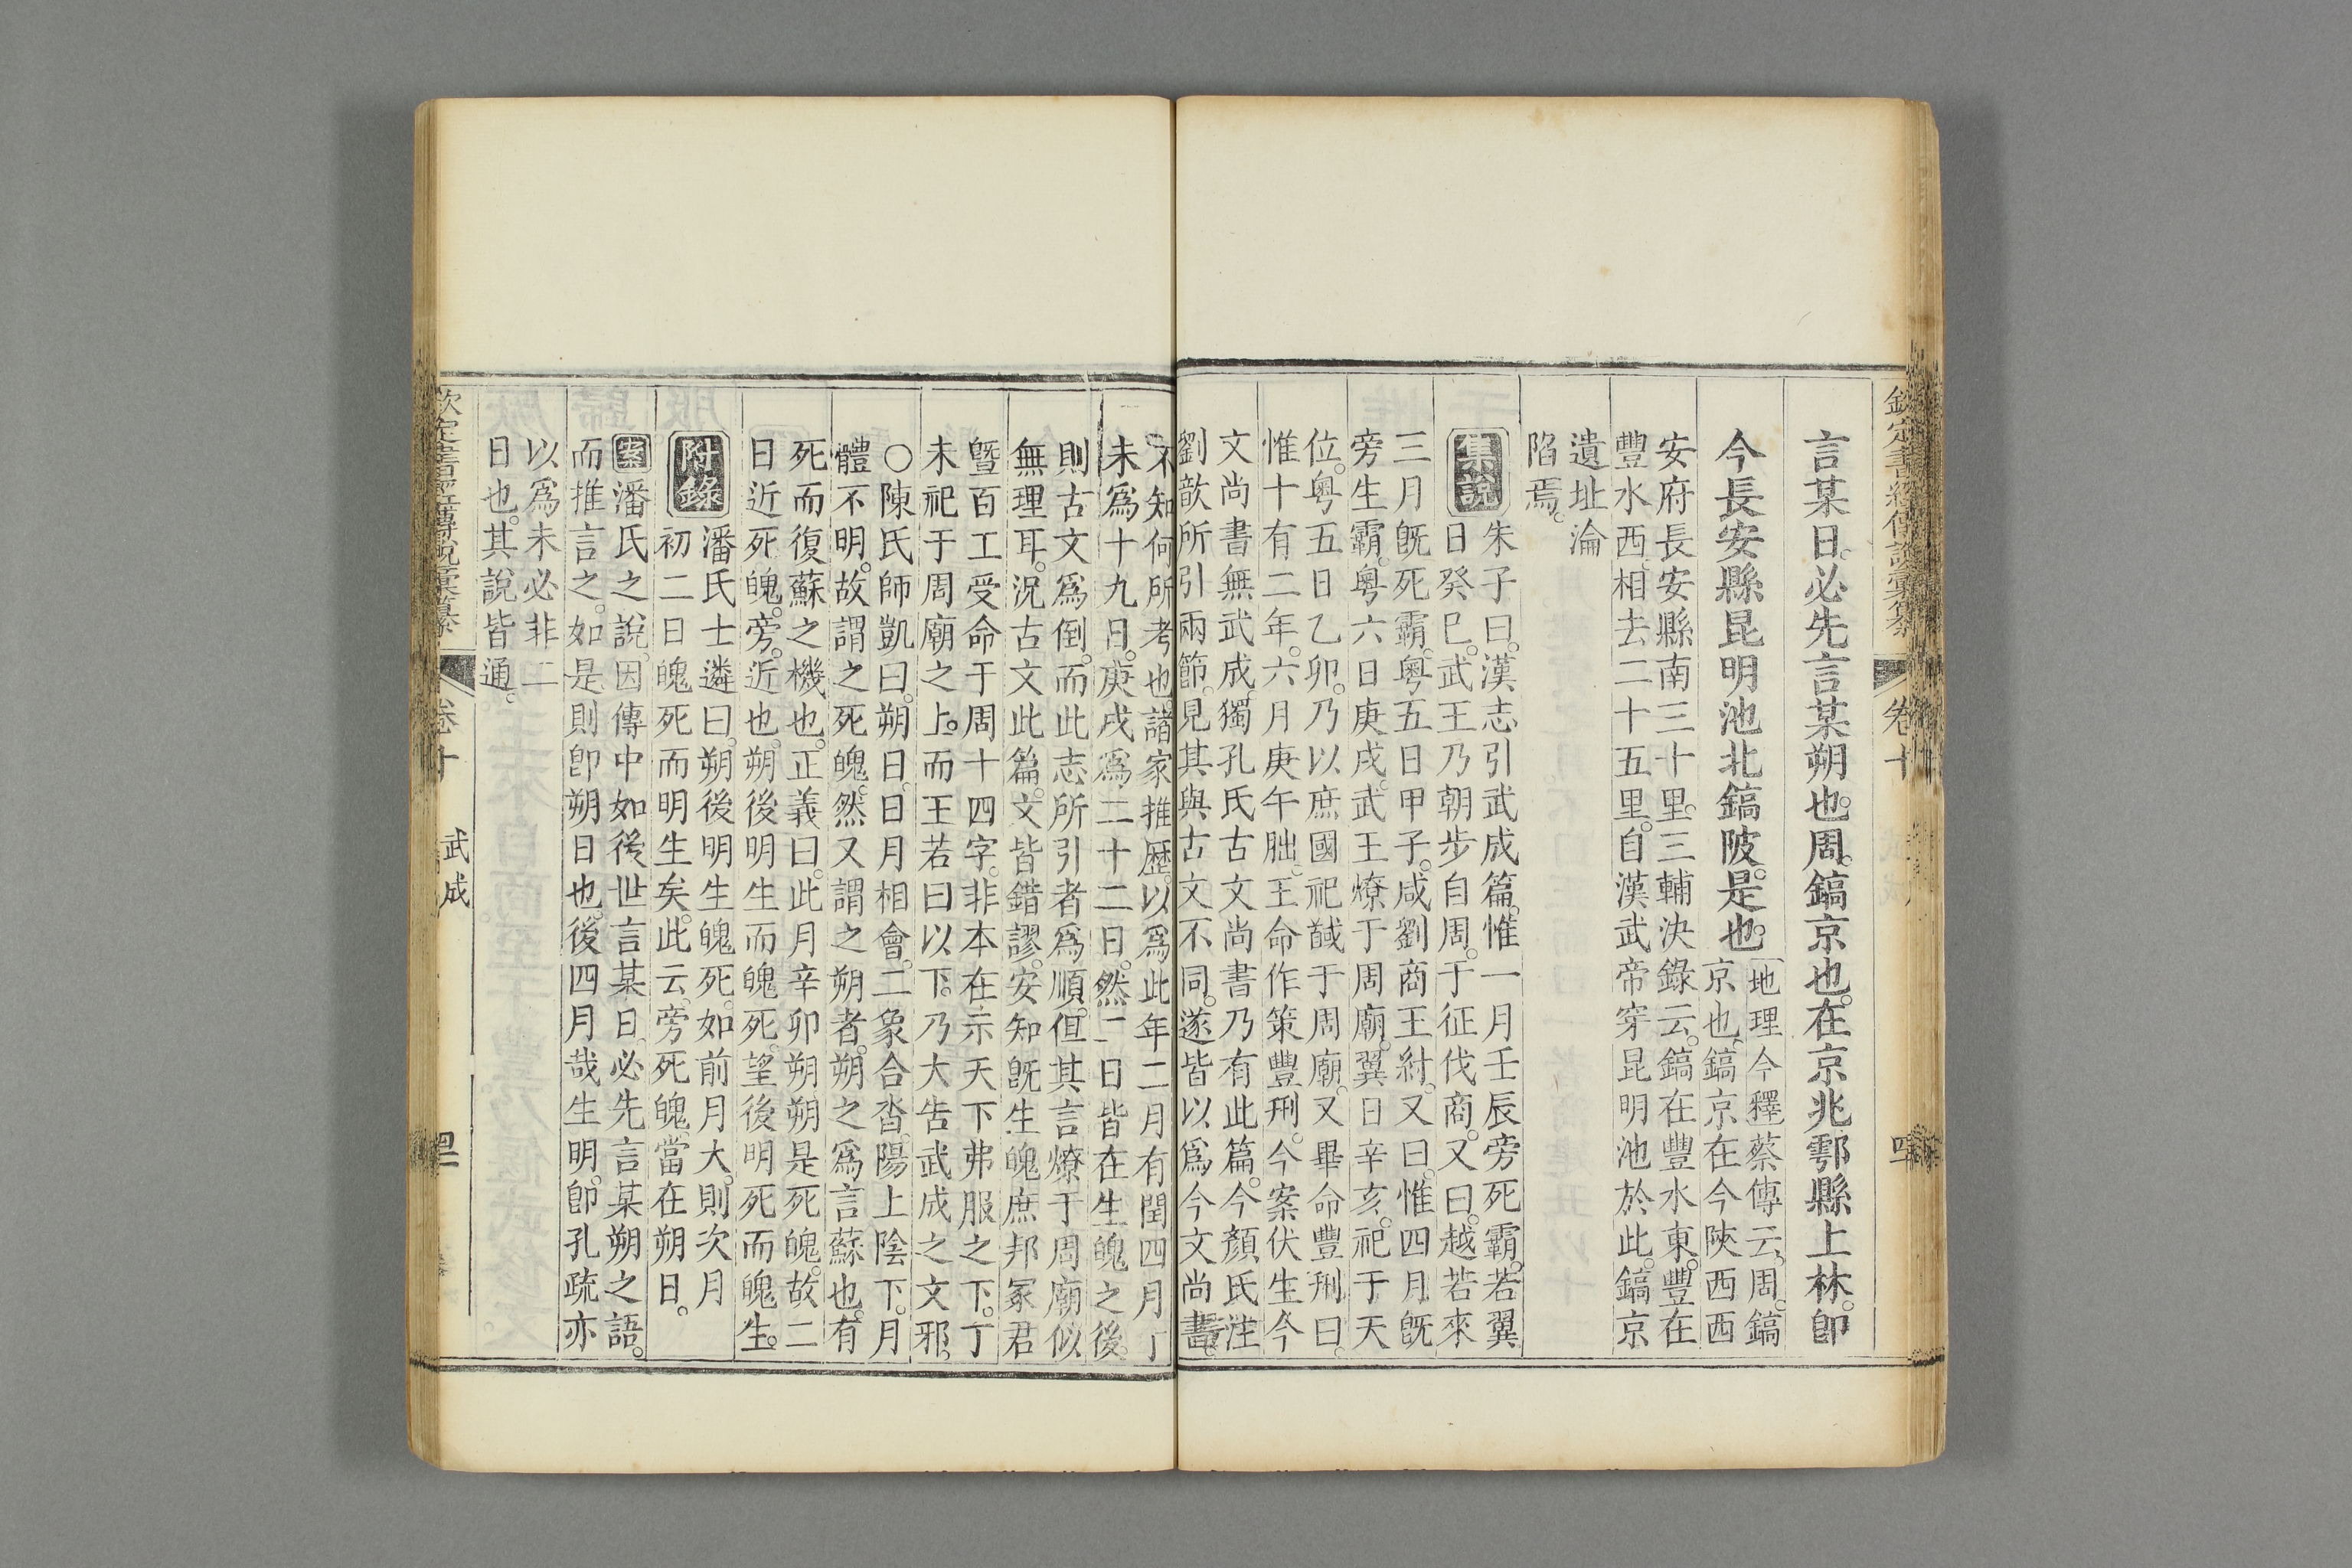 欽定書經傳說彙纂 卷十
言某日必先言某朔也周鎬京也在京兆鄠縣上林即
今長安縣昆明池北鎬陂是也
地理今釋蔡傳云周鎬
京也鎬京在今陝西西
安府長安縣南三十里三輔決錄云鎬在豐水東豐在
豐水西相去二十五里自漢武帝穿昆明池於此鎬京
遺址淪
陷焉
集說
朱子曰漢志引武成篇惟一月壬辰旁死霸若翼
日癸巳武王乃朝步自周于征伐商又曰越若來
三月旣死霸粵五日甲子咸劉商王紂又曰惟四月旣
旁生霸粵六日庚戌武王燎于周廟翼日辛亥祀于天
位粵五日乙卯乃以庶國祀馘于周廟又畢命豐刑曰
惟十有二年六月庚午朏王命作策豐刑今案伏生今
文尚書無武成獨孔氏古文尚書乃有此篇今顏氏注
劉歆所引兩節見其與古文不同遂皆以爲今文尚書
不知何所考也諸家推歷以爲此年二月有閏四月丁
未爲十九日庚戌爲二十二日然二日皆在生魄之後
則古文爲倒而此志所引者爲順但其言燎于周廟似
無理耳況古文此篇文皆錯謬安知旣生魄庶邦冢君
曁百工受命于周十四字非本在示天下弗服之下丁
未祀于周廟之上而王若曰以下乃大告武成之文邪
○陳氏師凱曰朔日日月相會二象合沓陽上陰下月
體不明故謂之死魄然又謂之朔者朔之爲言蘇也有
死而復蘇之機也正義曰此月辛卯朔朔是死魄故二
日近死魄旁近也朔後明生而魄死望後明死而魄生
附錄
潘氏士遴曰朔後明生魄死如前月大則次月
初二日魄死而明生矣此云旁死魄當在朔日
案潘氏之說因傳中如後世言某日必先言某朔之語
而推言之如是則卽朔日也後四月哉生明卽孔疏亦
以爲未必非二
日也其說皆通
欽定書經傳說彙纂 卷十 武成